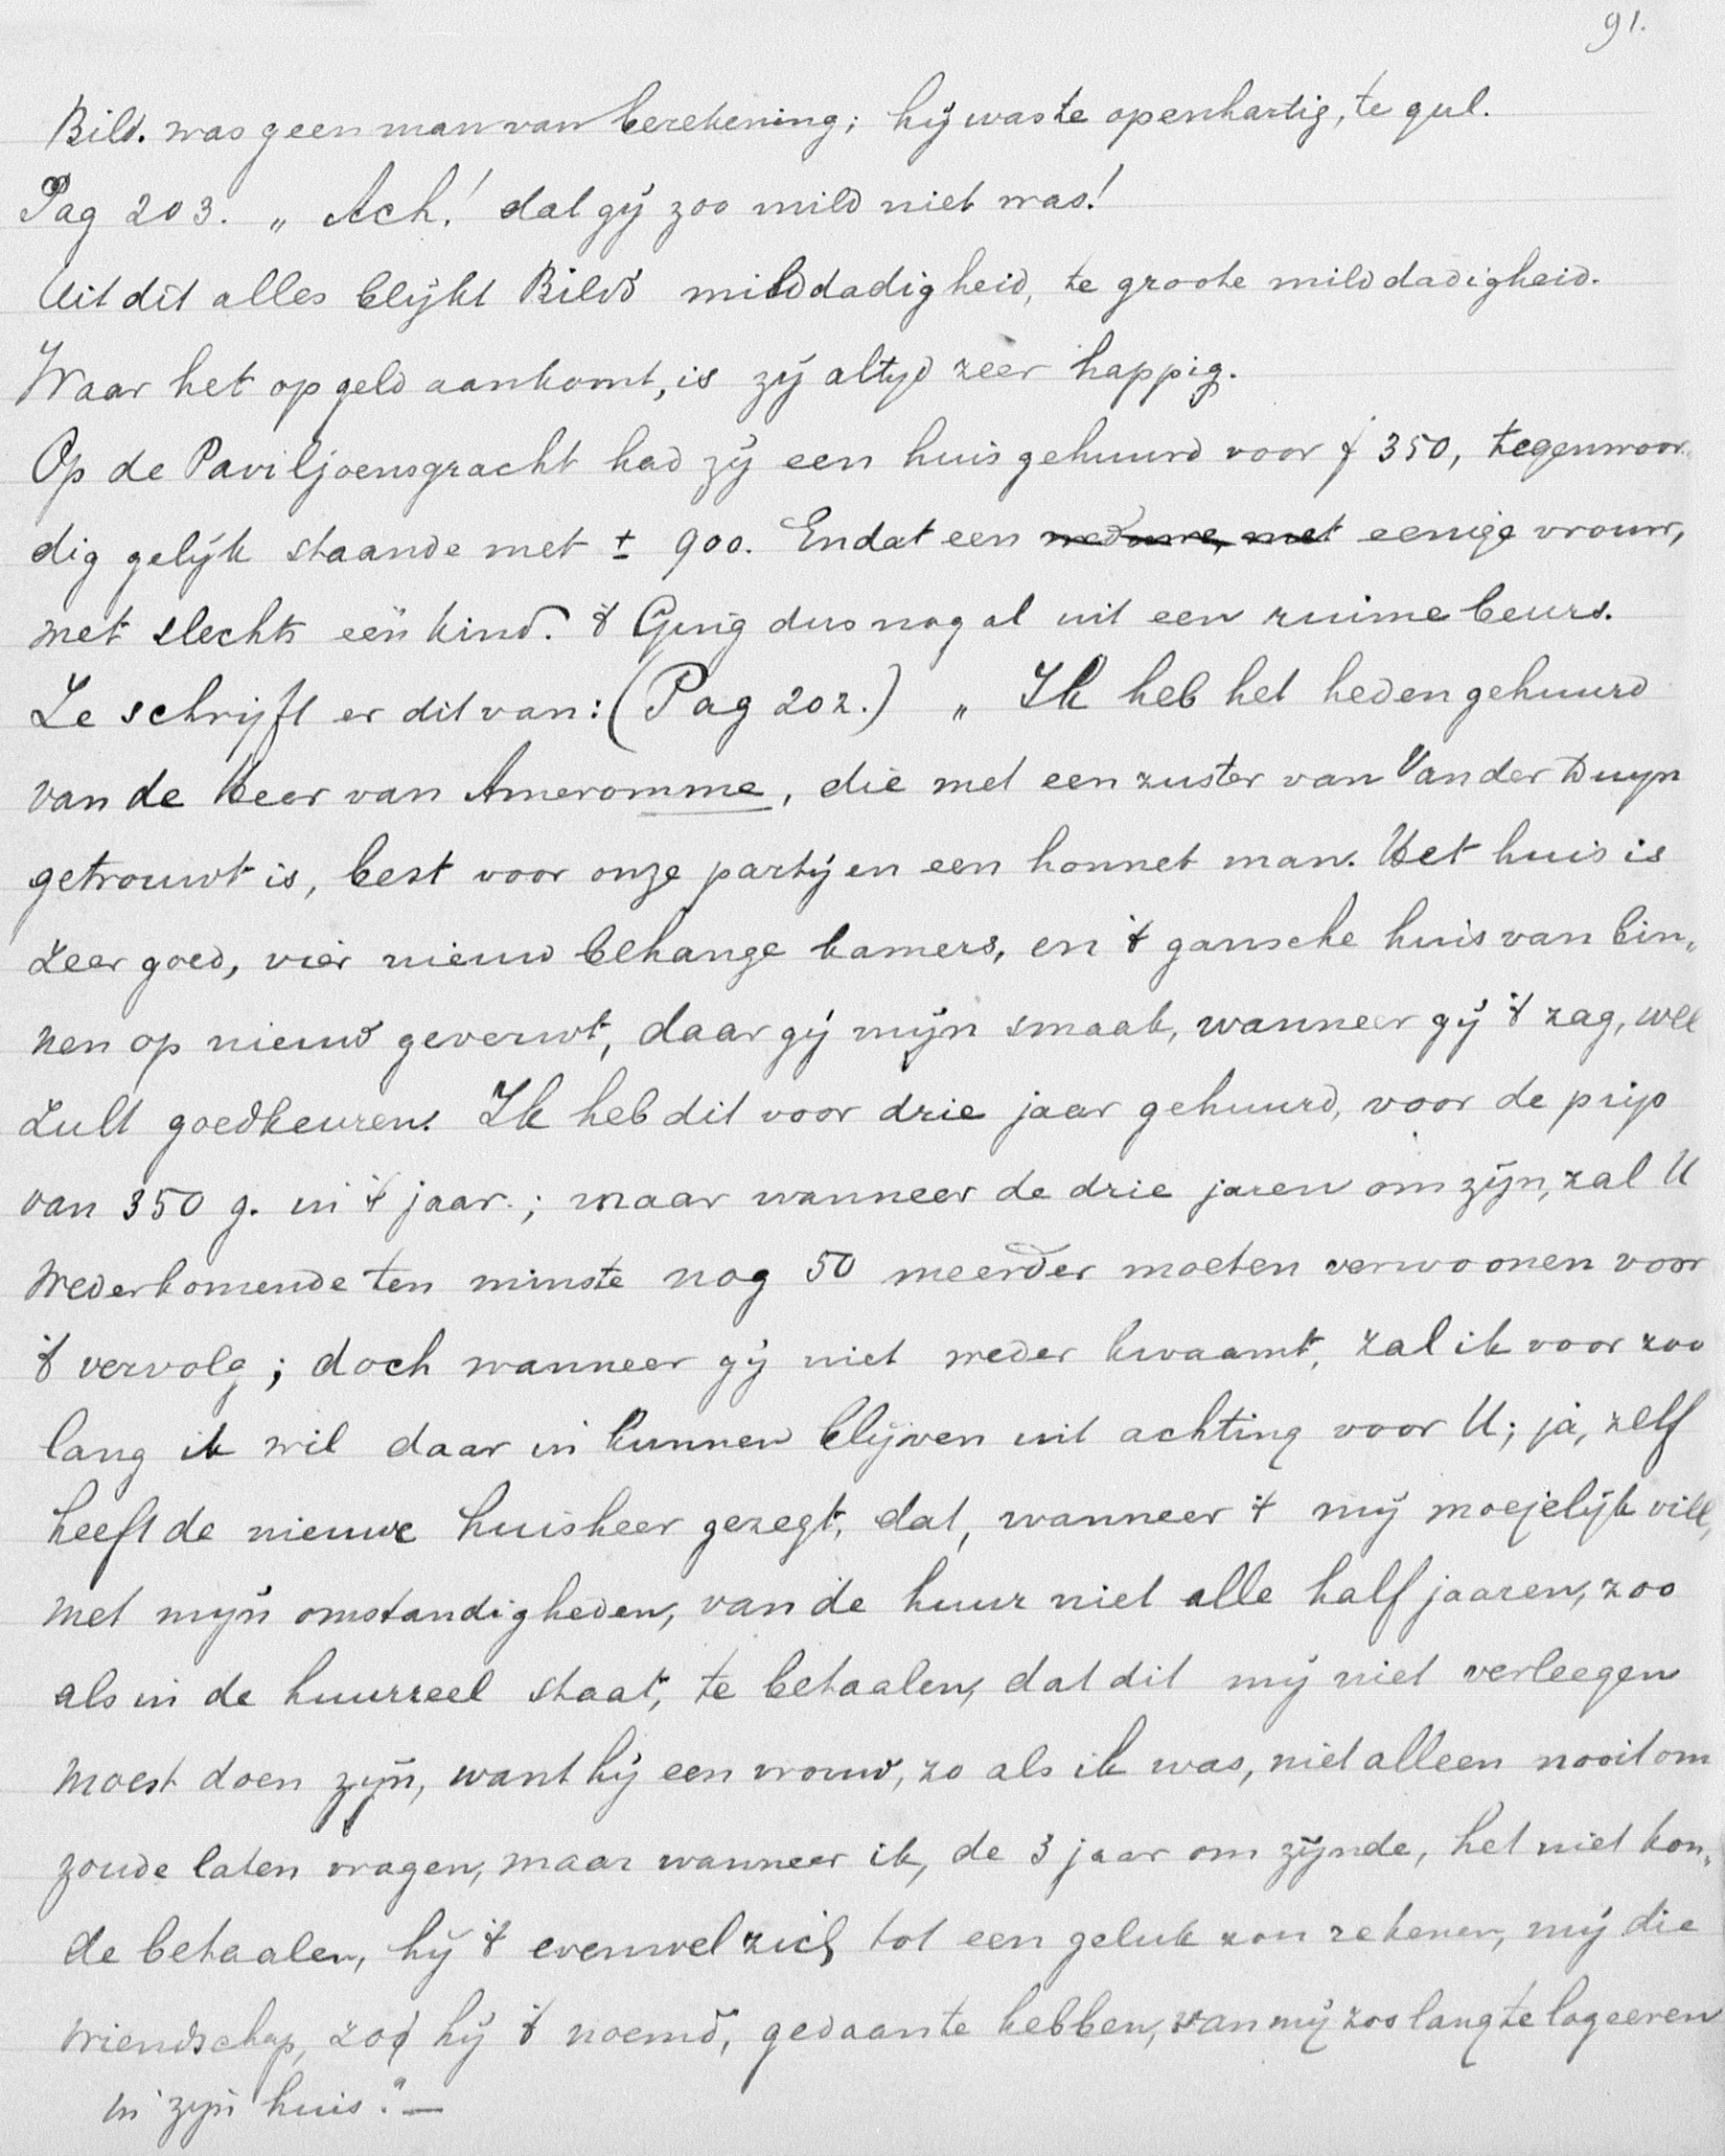 91.
Bild. was geen man van berekening; hij was te openhartig, te gul.
Pag 203. „ Ach! dat gij zoo mild niet was!
Uit dit alles blijkt Bild's milddadigheid, te groote milddadigheid.
Waar het op geld aankomt, is zij altijd zeer happig.
Op de Paviljoensgracht had zij een huis gehuurd voor f 350, tegenwoor„
dig gelijk staande met ± 900. En dat een weduwe, met eenige vrouw,
met slechts een kind. 't Ging dus nog al uit een ruime beurs.
Ze schrijft er dit van: (Pag 202.) „ Ik heb het heden gehuurd
van de Heer van Ameromme, die met een zuster van Van der Duyn
getrouwt is, best voor onze partij en een honnet man. Het huis is
zeer goed, vier nieuw behange kamers, en 't gansche huis van bin„
nen op nieuw geverwt, daar gij mijn smaak, wanneer gij 't zag, wel
zult goedkeuren. Ik heb dit voor drie jaar gehuurd, voor de prijs
van 350 g. in 't jaar.; maar wanneer de drie jaren om zijn, zal U
wederkomende ten minste nog 50 meerder moeten verwoonen voor
't vervolg; doch wanneer gij niet weder kwaamt, zal ik voor zoo
lang ik wil daar in kunnen blijven uit achting voor U; ja, zelf
heeft de nieuwe huisheer gezegt, dat, wanneer 't mij moejelijk vill,
met mijn omstandigheden, van de huur niet alle half jaaren, zoo
als in de huurceel staat, te betaalen, dat dit mij niet verleegen
moest doen zijn, want hij een vrouw, zo als ik was, niet alleen nooit om
zoude laten vragen, maar wanneer ik, de 3 jaar om zijnde, het niet kon„
de betaalen, hij 't evenwel zich tot een geluk zou rekenen, mij die
vriendschap, zoo hij 't noemd, gedaan te hebben, van mij zoo lang te logeeren
in zijn huis." —